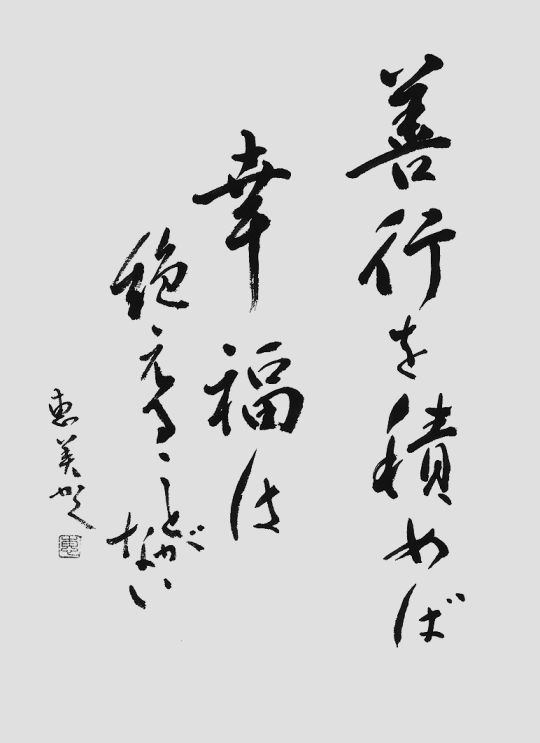 善行を積めば
幸福は
絶えることがない
恵美